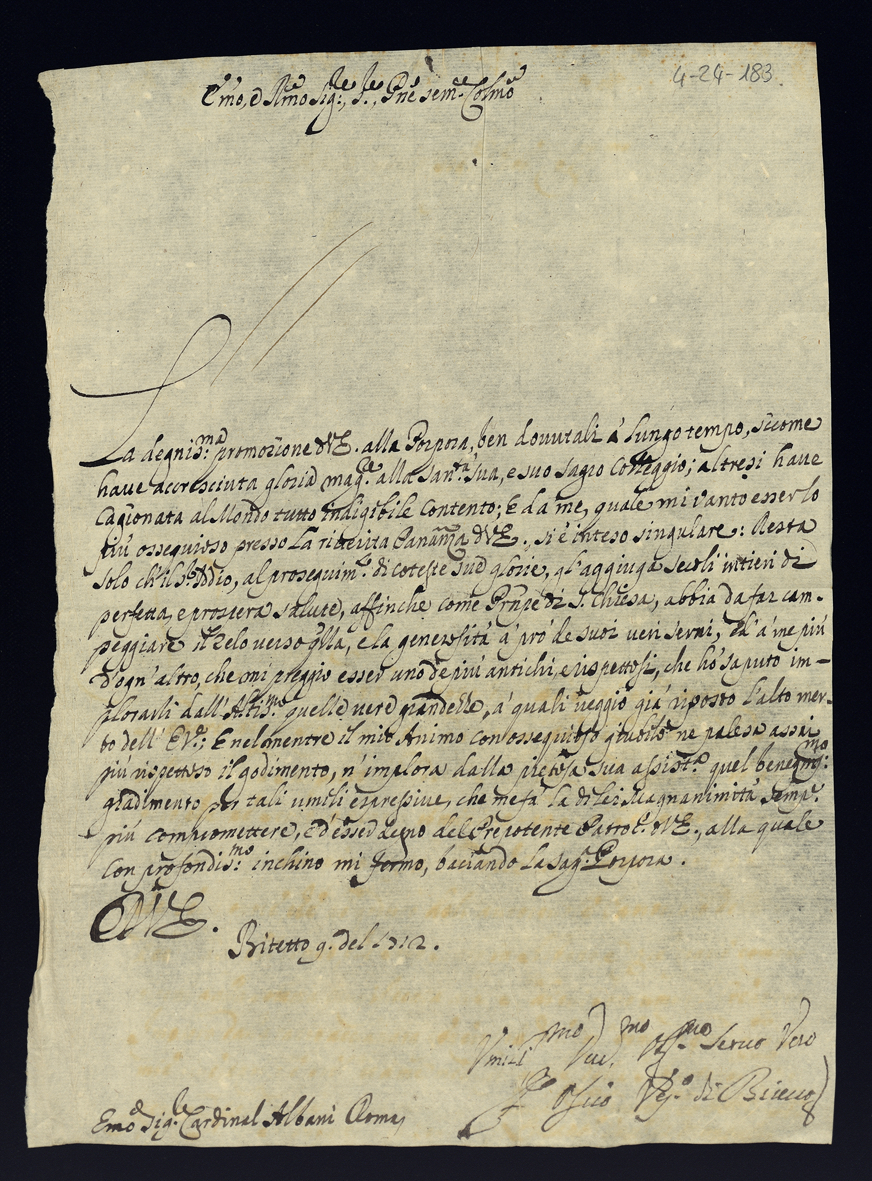 4-24-183
Emo, e Rmo Sig.re, Sre, Pne sem.e Colmo
La degnis.ma promozione di V.E. alla Porpora, ben dovutali á lungo tempo, siccome
have accresciuta gloria mag.re alla San.tà Sua, e suo sagro Corteggio; altresi have
Cagionata al Mondo tutto indigibile contento; E da me, quale mi vanto esserlo
più ossequioso presso La riverita di V.E., si è inteso singulare: Resta
solo ch'il S.r Iddio, al proseguim.to di coteste sue glorie, gl'aggiuga secoli intieri di
perfetta, e prospera salute, affinche come Prñpe di S. Chiesa, abbia da far cam-
peggiare il Zelo verso qlla, e la generosità a prò de suoi veri servi, ed' a me più
d'ogn'altro, che mi preggio esser uno de più antichi, e rispettosi, che hò saputo im-
plorarli dall'Altis.mo quelle vere grandezze, a' quali veggio già riposto l'alto mer-
to dell'E.V.; E nel mentre il mio Animo con ossequioso giubilo ne palesa assai
più rispettoso il godimento, n'implora dalla pietosa sua assist.a quel benegnis.mo
gradimento per tali umili espressive, che mi fa la di Lei Magnanimità semp.e
più compromettere, e d'esser degno del Prepotente Patroc.o di V.E., alla quale
con profondis.mo inchino mi fermo, baciando la sag.a Porpora.
D.V.E.
Bitetto 9. del 1712.
Umiliss.mo Dev.mo Oss.mo Servo Vero
Vesc.o di
Emo Sig.re Cardinal Albani Roma